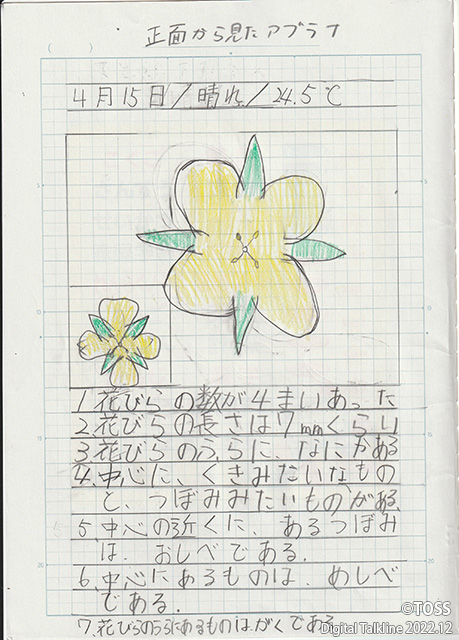 正面から見たアブラナ
(　　)
4月15日/晴れ/24.5℃
1.花びらの数が4まいあった
2.花びらの長さは7mmくらい
3.花びらのうらに、なにかある
4.中心に、くきみたいなもの
と、つぼみみたいものがある。
5.中心の近くに、あるつぼみ
は、おしべである。
6.中心にあるものは、めしべ
である。
7.花びらのうらにあるものはがくである
©TOSS
Digital Talkline 2022.12